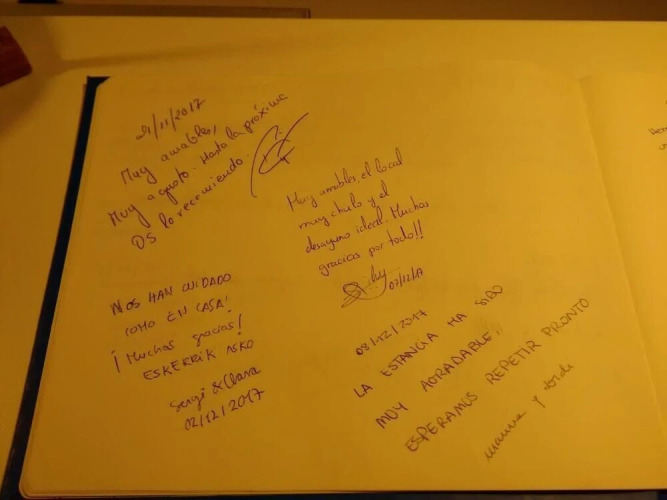 21/11/2017
Muy amables,
Muy a gusto. Hasta la próxima
OS lo recomiendo.
Muy amables, el local
muy chulo y el
desayuno ideal. Muchas
gracias por todo!!
07/12/17
NOS HAN CUIDADO
COMO EN CASA!
¡Muchas gracias!
ESKERRIK ASKO
Sergi & Clara
02/12/2017
08/12/2017
LA ESTANCIA HA SIDO
MUY AGRADABLE.
ESPERAMOS REPETIR PRONTO